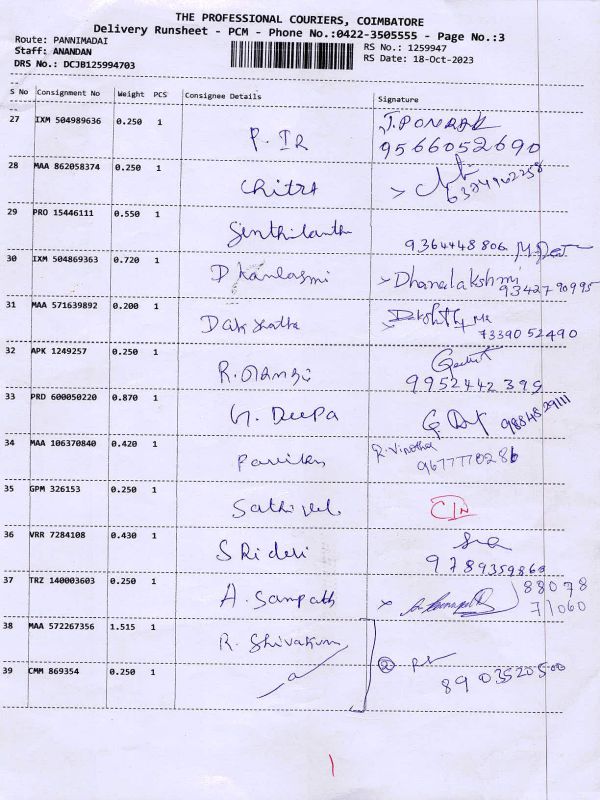 THE PROFESSIONAL COURIERS, COIMBATORE
Delivery Runsheet - PCM - Phone No.:0422-3505555 - Page No.:3
Route: PANNIMADAI
RS No.: 1259947
Staff: ANANDAN
RS Date: 18-Oct-2023
DRS No.: DCJB125994703
S No Consignment No Weight PCS Consignee Details Signature
27 IXM 504989636 0.250 1 P. IR J.PONRAK
9566052690
28 MAA 862058374 0.250 1 Chitra
6374962258
29 PRO 15446111 0.550 1 Senthilanth
9364448806
30 IXM 504869363 0.720 1 Dhanlaxmi Dhanalakshmi
9342790995
31 MAA 571639892 0.200 1 Dakshatha
7339052490
32 APK 1249257 0.250 1 R.
9952442399
33 PRD 600050220 0.870 1 G. Deepa
9884829111
34 MAA 106370840 0.420 1 R. Vinotha
9677770286
35 GPM 326153 0.250 1 Sathivel
36 VRR 7284108 0.430 1 SRidevi
9789359869
37 TRZ 140003603 0.250 1 A. Sampath 88078
71060
38 MAA 572267356 1.515 1 R. Shivakum
2
39 CMM 869354 0.250 1 8903520500
1